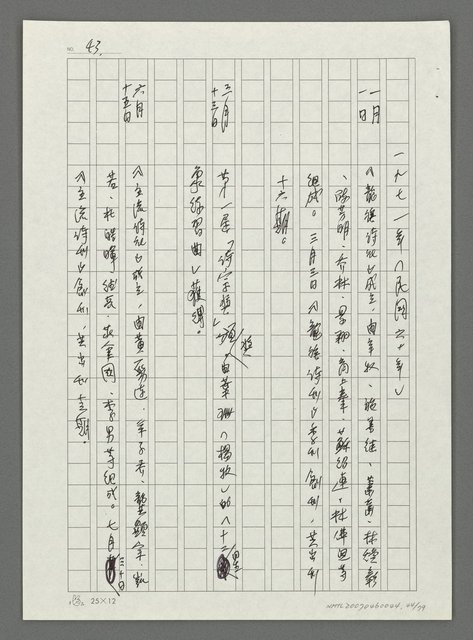 NO. 43.
一九七一年(民國六十年)
一月一日
《龍族詩社》成立,由辛牧、施善繼、蕭蕭、林煥彰
、陳芳明、喬林、景翔、高上秦、蘇紹連、林佛兒等
組成。三月三日《龍族詩刊》季刊創刊,共出刊
十六期。
三月十三日
第一屆「詩宗獎」頒獎,由葉珊(楊牧)的《十二星
象練習曲》獲得。
六月十五日
《主流詩社》成立,由黃勁連、羊子喬、龔顯宗、凱
若、杜皓暉、德亮、莊金國、李男等組成。七月三十日
《主流詩刊》創刊,共出刊 期。
25×12
NMTL20070460044, 44/79